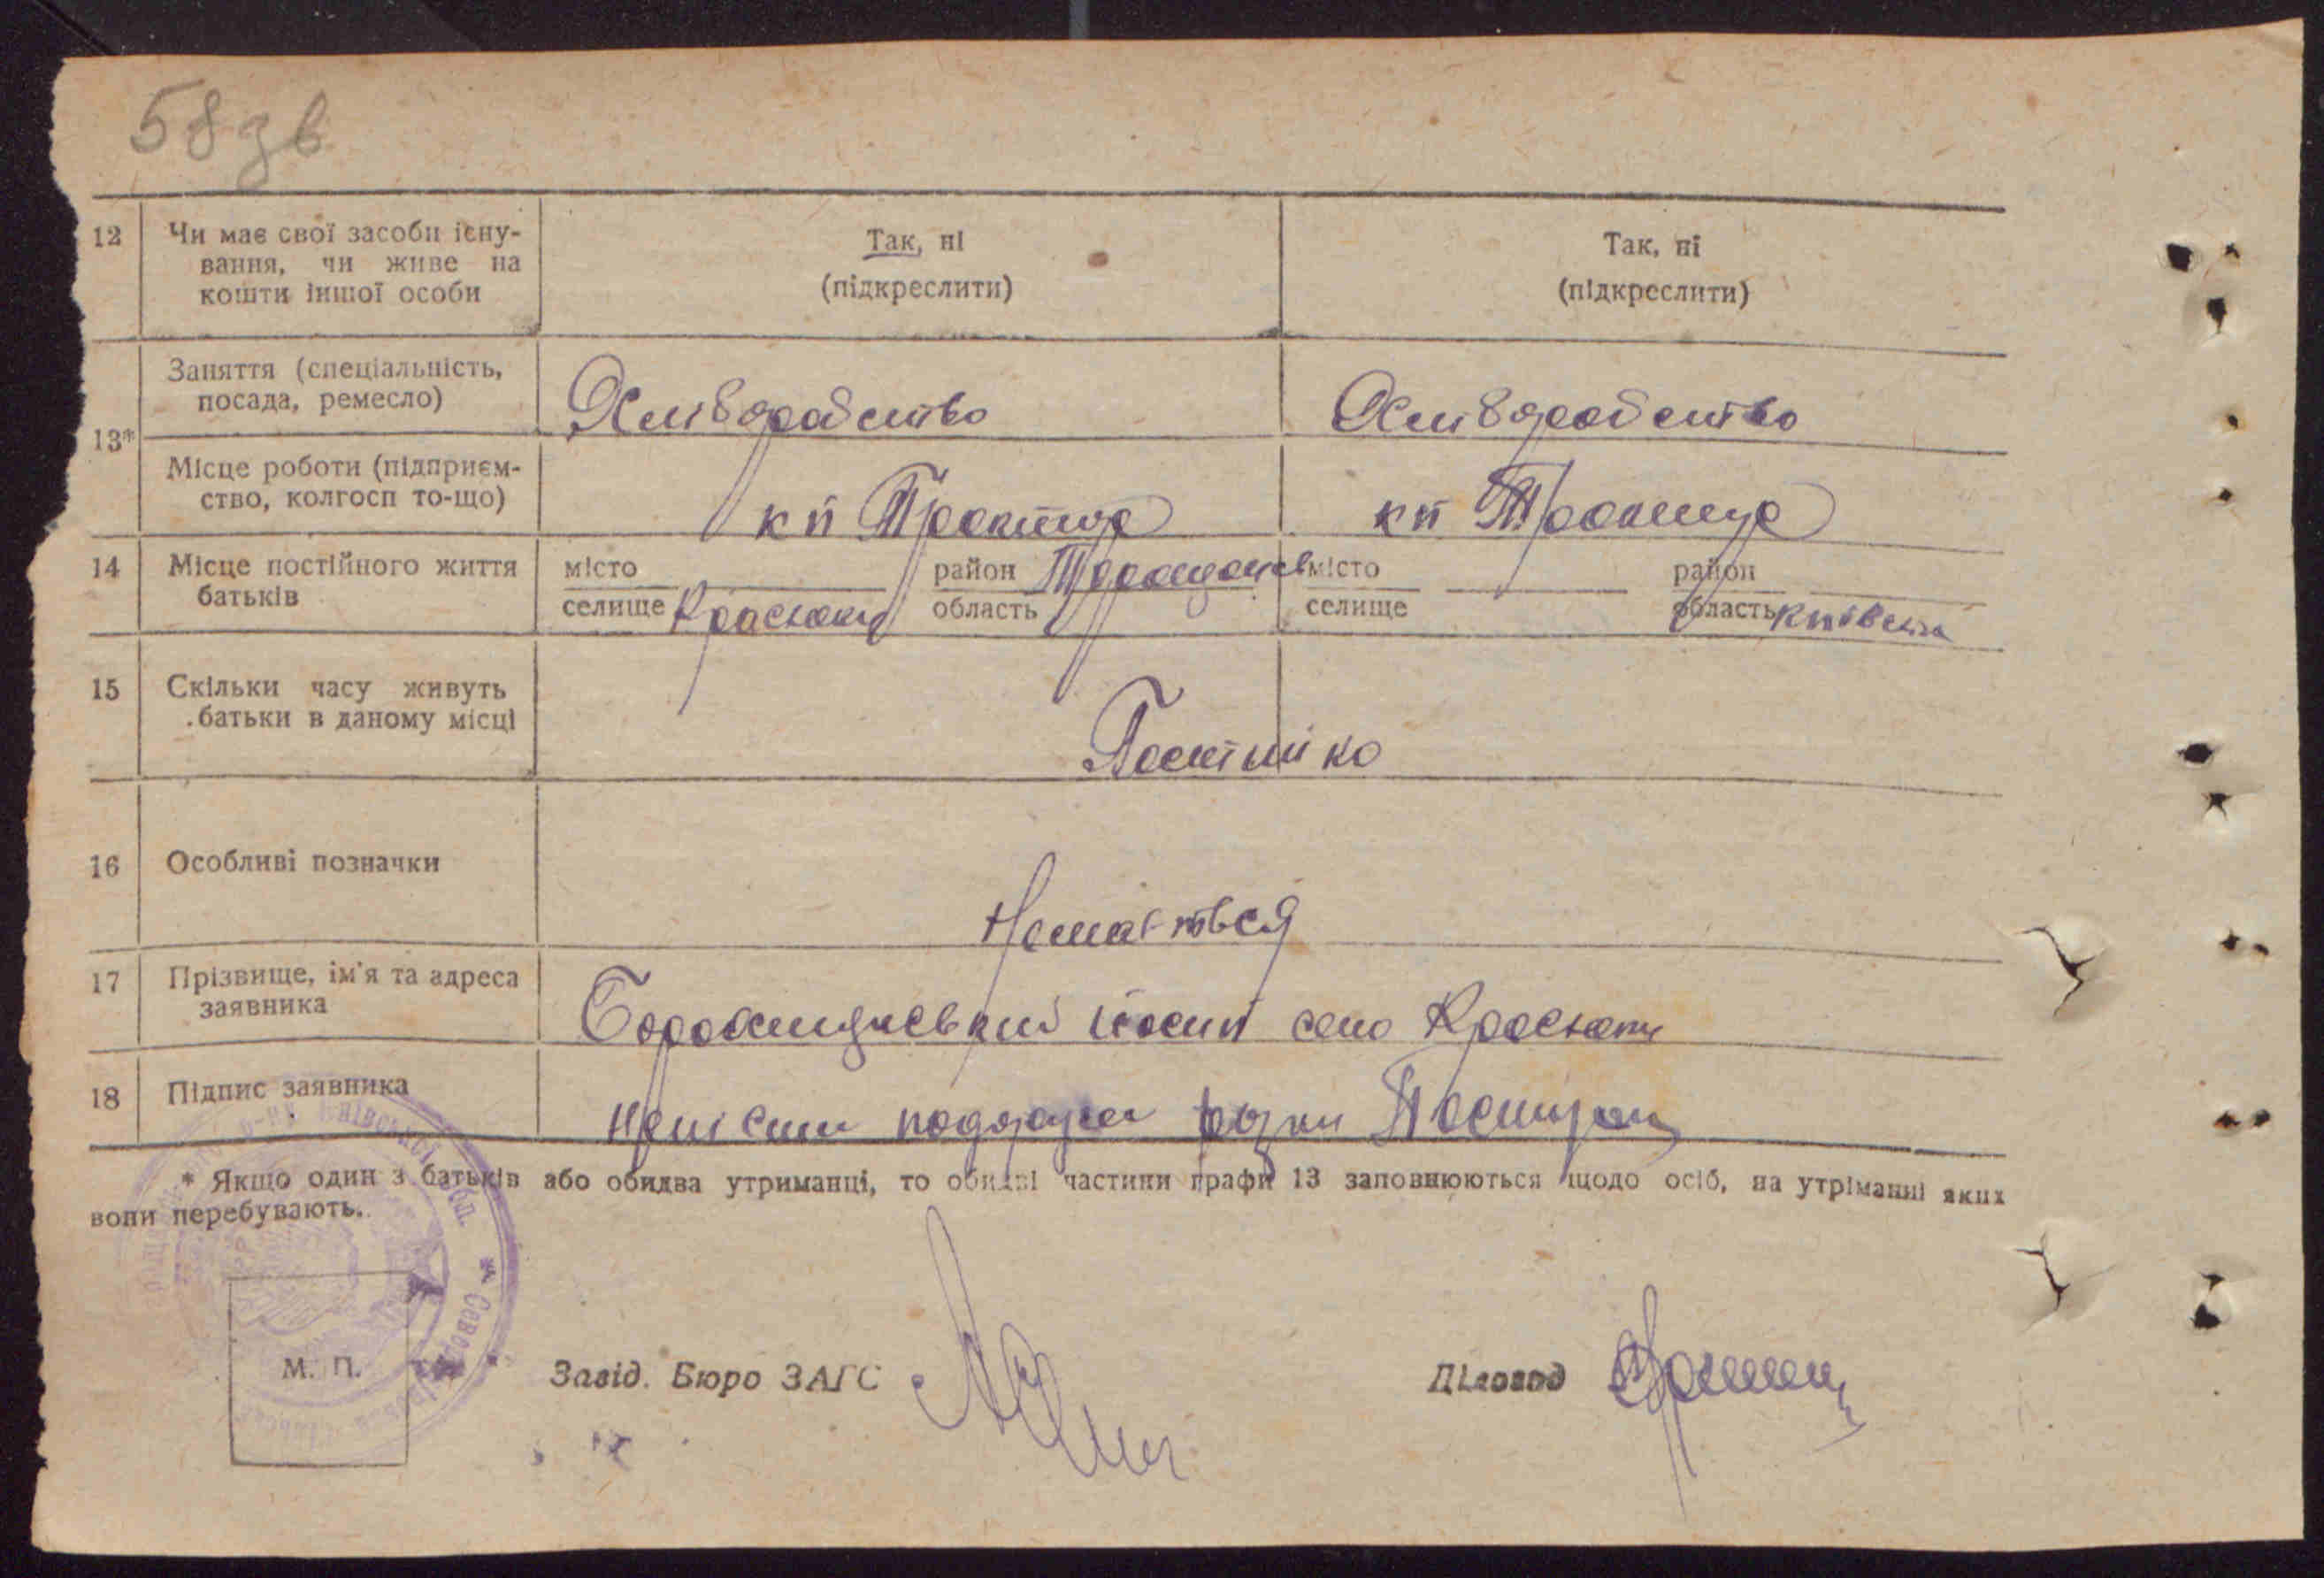 58зв
12 Чи має свої засоби існу- Так, ні Так, ні
вання, чи живе на (підкреслити) (підкреслити)
кошти іншої особи
Заняття (спеціальність,
посада, ремесло) Хліборобство Хліборобство
13*
Місце роботи (підприєм-
ство, колгосп то-що) кп Трактор кп Трактор
14 Місце постійного життя місто район Таращанськ місто район
батьків селище область селище область Київська
15 Скільки часу живуть
батьки в даному місці Постійно
16 Особливі позначки
Немається
17 Прізвище, ім'я та адреса
заявника село
18 Підпис заявника
* Якщо один з батьків або обидва утриманці, то обидві частини графи 13 заповнюються щодо осіб, на утріманні яких
вони перебувають.
М. П. Завід. Бюро ЗАГС Діловод